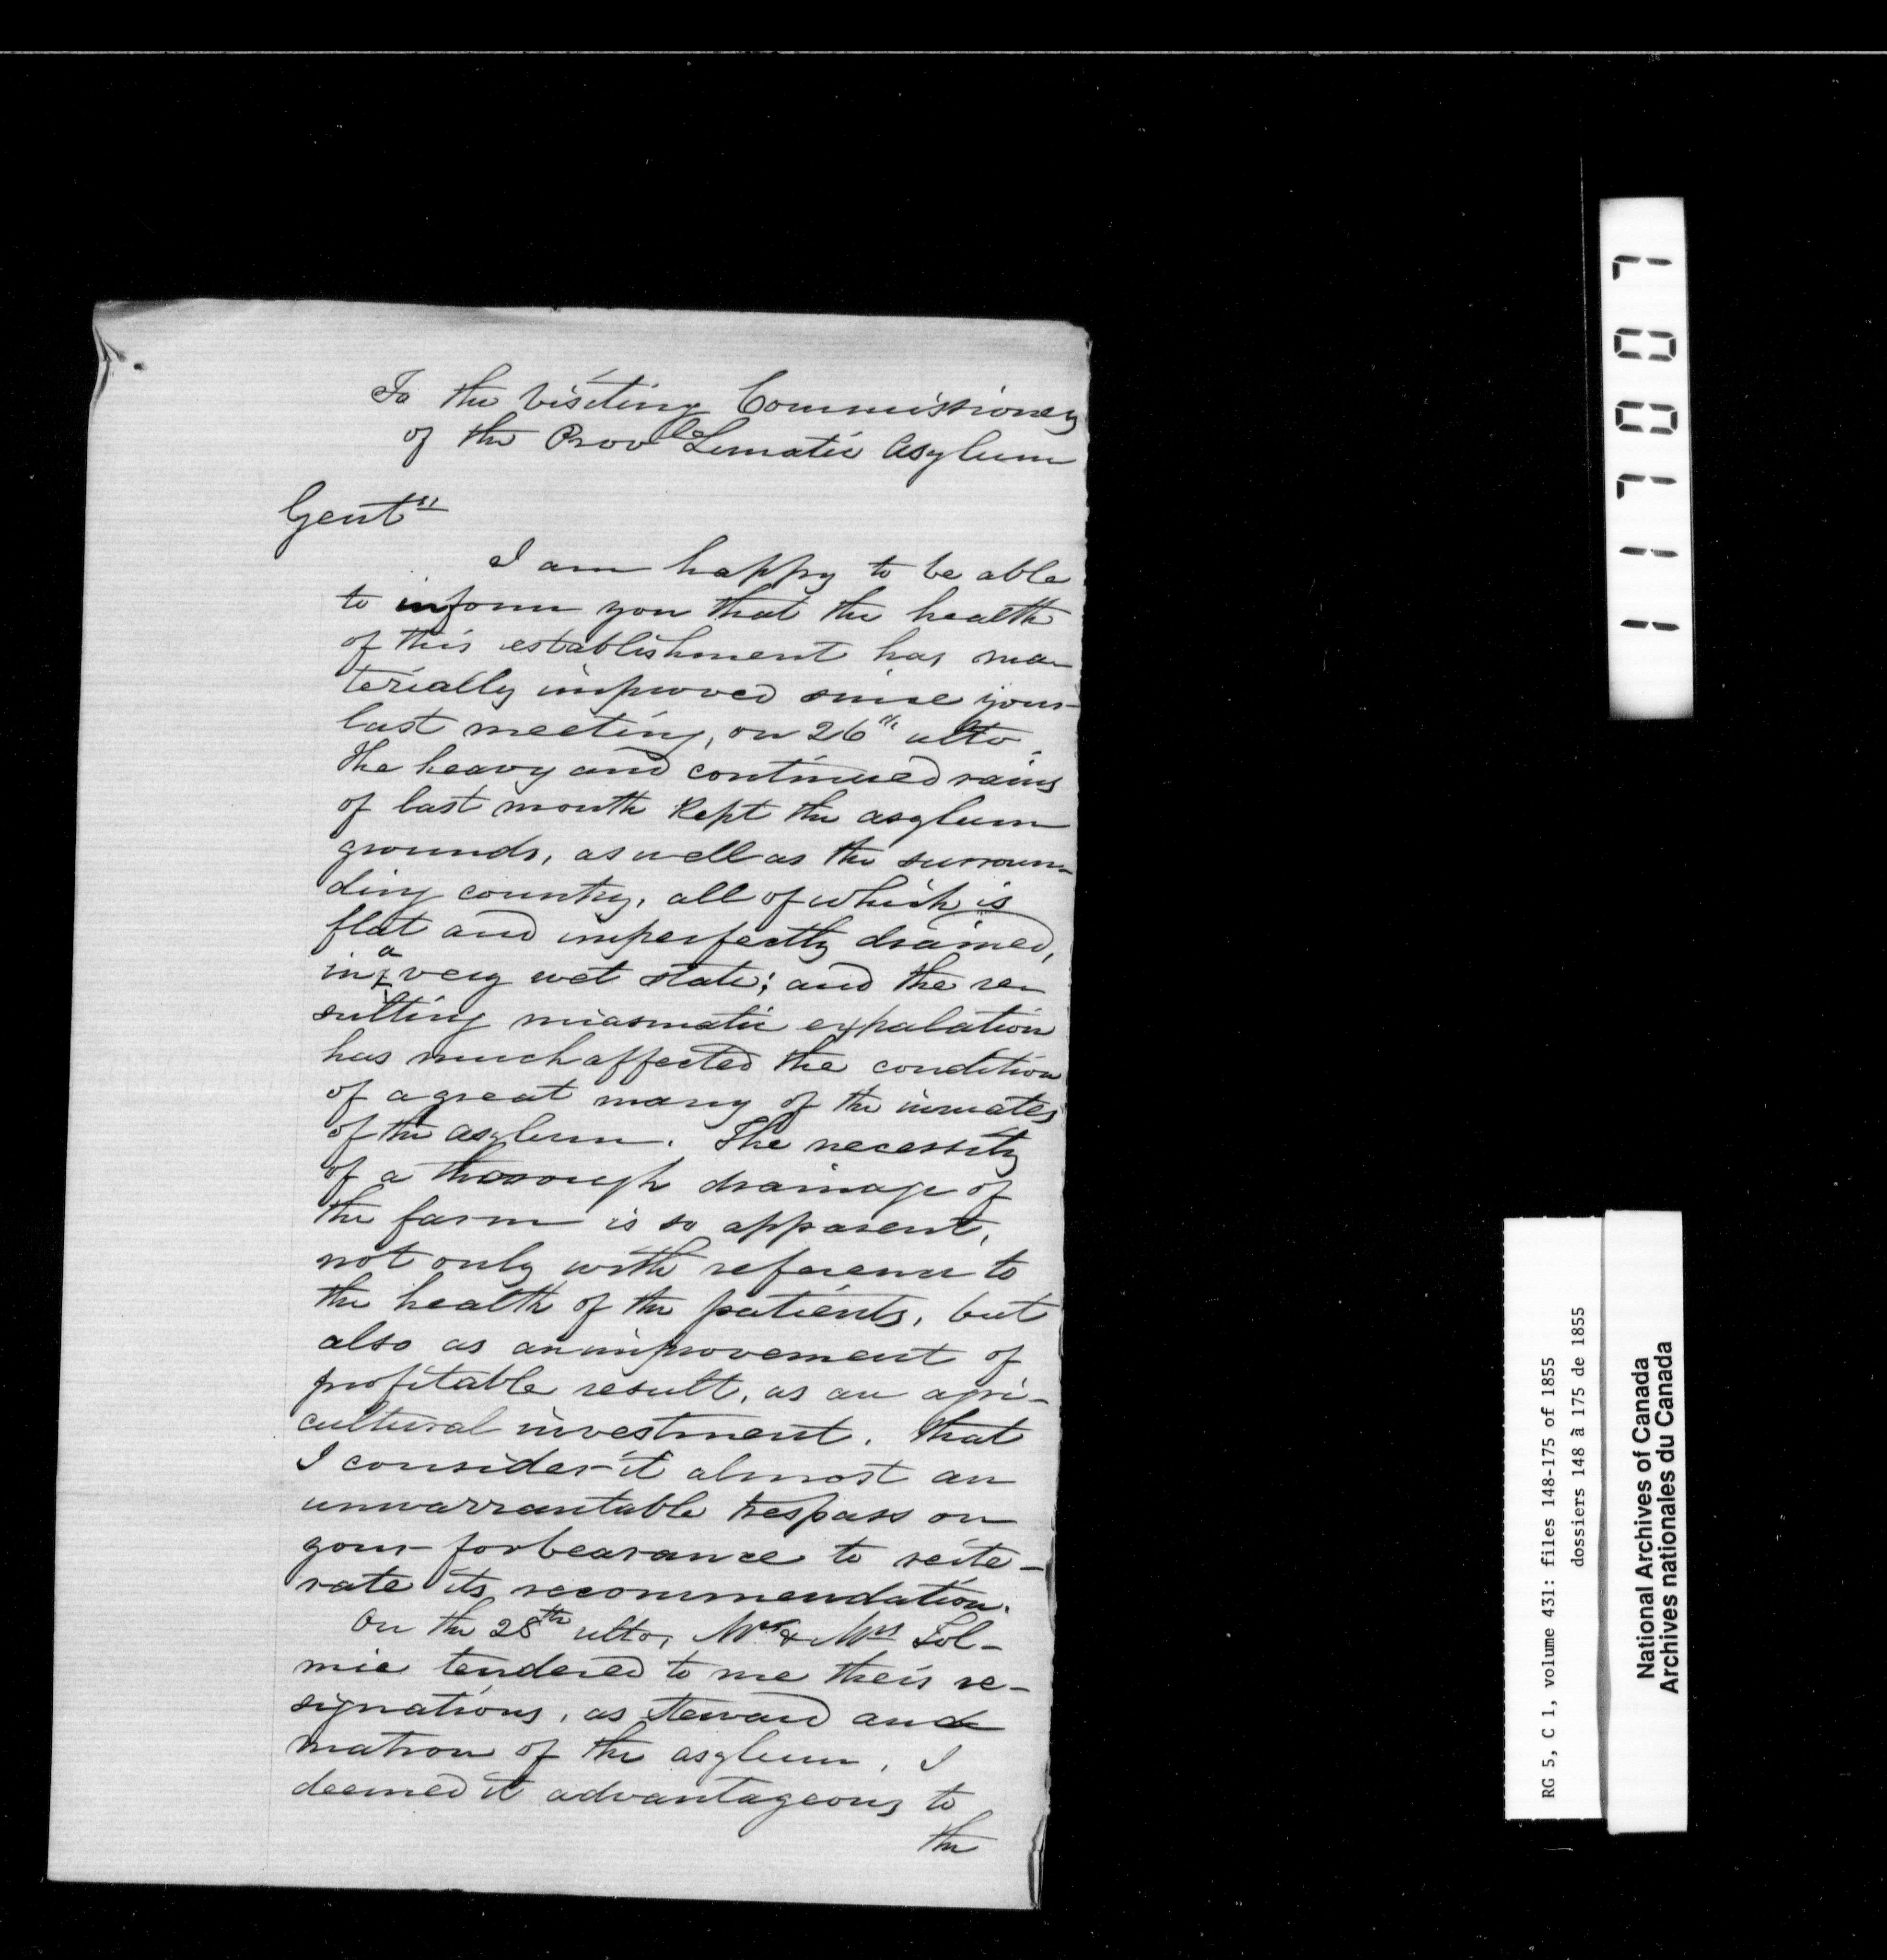 To the Visiting Commissioners
of the Prov^le Lunatic Asylum
Gent^n
I am happy to be able
to inform you that the health
of this establishment has ma-
terially improved since your
last meeting, on 26^th ulto.
The heavy and continued rains
of last month kept the asylum
grounds, as well as the surroun-
ding country, all of which is
flat and imperfectly drained,
in a very wet state; and the re-
sulting miasmatic exhalation
has much affected the condition
of a great many of the inmates
of the asylum. The necessity
of a thorough drainage of
the farm is so apparent,
not only with reference to
the health of the patients, but
also as an improvement of
profitable result, as an agri-
cultural investment, that
I consider it almost an
unwarrantable trespass on
your forbearance to reite-
rate its recommendation.
On the 28^th ulto, Mr & Mrs Tol-
mie tendered to me their re-
signations, as steward and
matron of the asylum. I
deemed it advantageous to
the
117007
RG 5, C 1, volume 431: files 148-175 of 1855
dossiers 148 à 175 de 1855
National Archives of Canada
Archives nationales du Canada